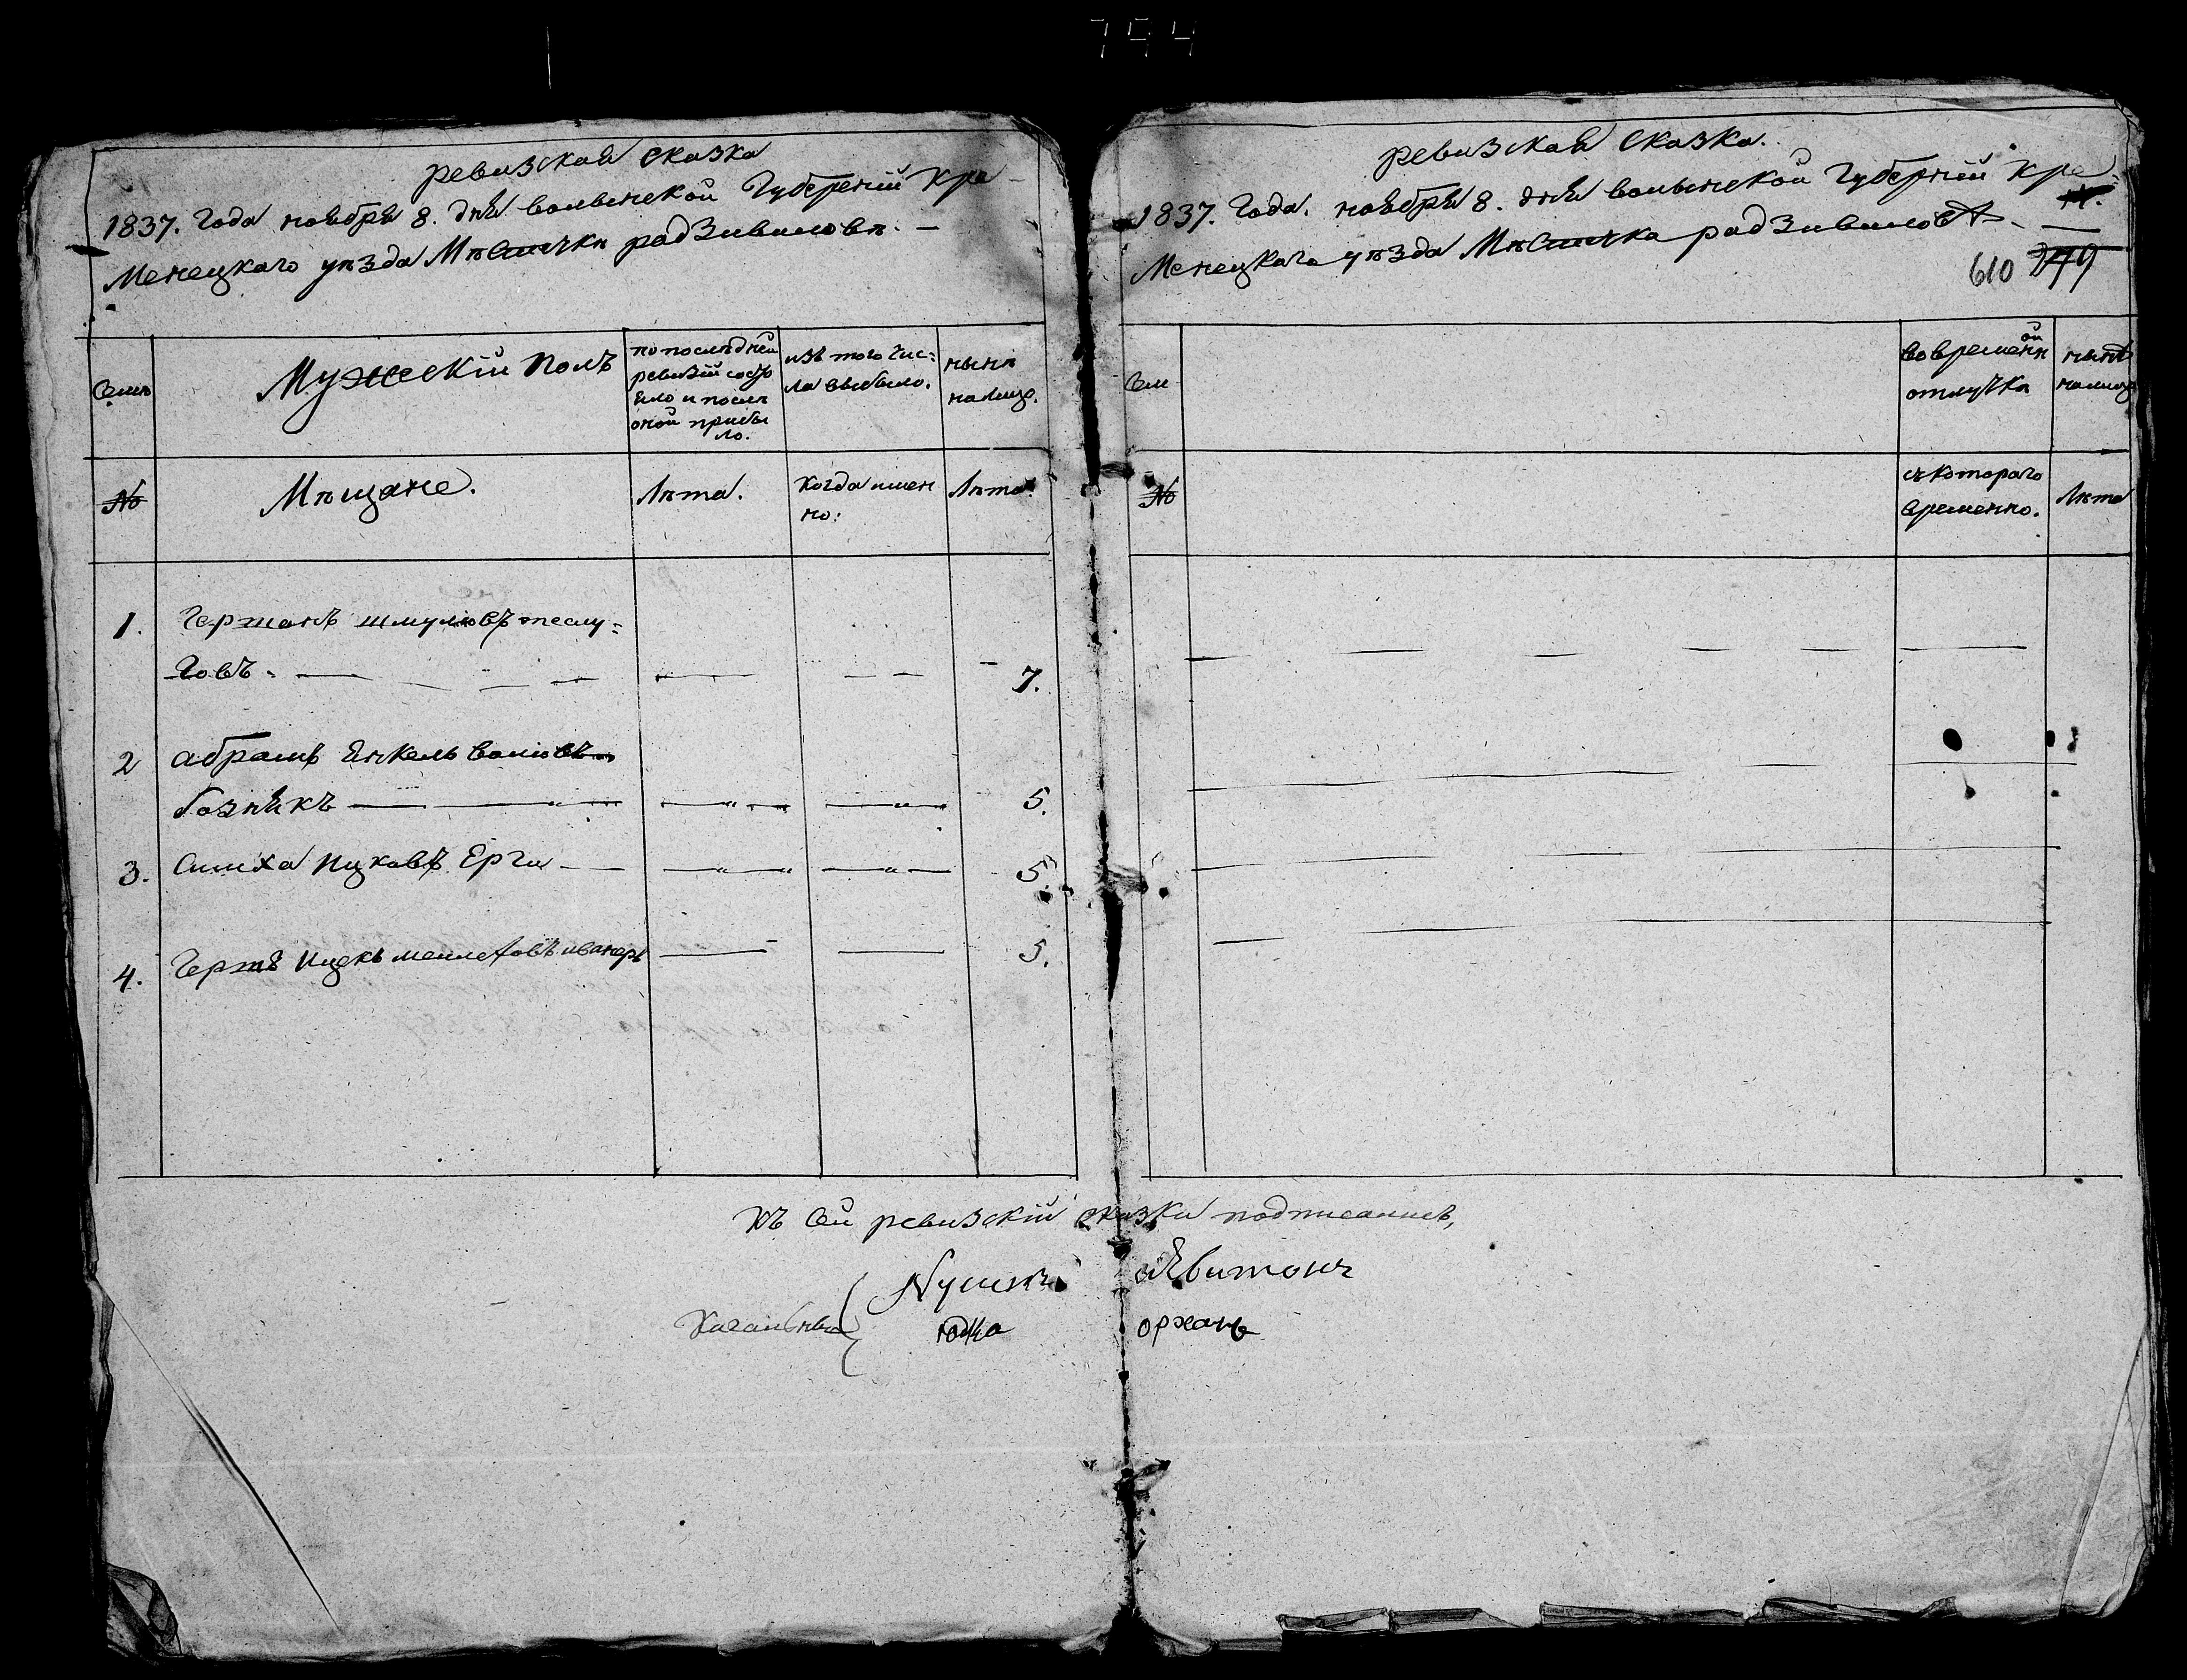 754
ревизская сказка
1837. Года ноября 8. дня волынской Губерний Кре
Менецкаго уезда Мѣстичка радзивиловѣ. —
Семѣ
Мужескій Полъ
по послѣдней
ревизій состо
яло и послѣ
оной прибы
ло.
изъ того чис=
ла выбыло.
нынѣ
на лицо.
№
Мѣщане.
Лѣта.
Когда имен
но:
Лѣта
1.
Гершонъ шмулювъ
ковъ.
7.
2
абрамъ Янкель волювъ
бозникъ
5.
3.
Симха ицковъ Ерги
5.
4.
Гершъ Ицекъ
5.
ревизская сказка.
1837. Года. ноября 8. дня волынской Губерний Кре
Менецкаго уѣзда Мѣстичка радзивиловѣ
610 279
Сем
во временной
отлучкѣ
нынѣ
на лицо
№
съ котораго
временно.
Лѣта
Къ сей ревизскій сказки подписались,
юдка орхань